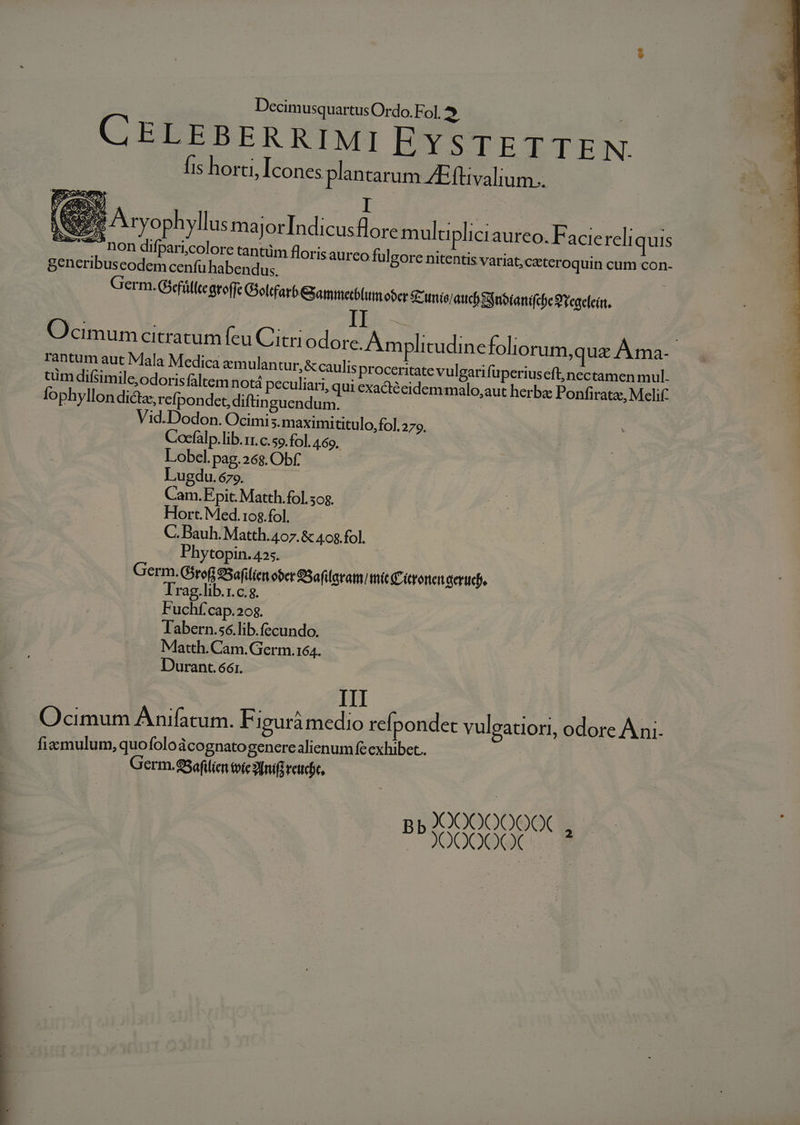 Decimusquartus Ordo. Fol. 2.
CELEBERRIMI EYSTETTEN-
ſis horti, Icones plantarum Æſtivalium.
I
CAryophyllus major Indicus flore multiplici aureo. Facie reliquis
non diſpari, colore tantùm floris aureo fulgore nitentis variat, cæteroquin cum con-
generibus eodem cenſu habendus.
Germ. Gefüllte groſſe Goltfarb Sammetblum oder Tunis/ auch Indianiſche Negelein.
II
Ocimum citratum ſeu Citri odore. Amplitudine foliorum, quæ Ama-
rantum aut Mala Medica æmulantur, & caulis proceritate vulgari ſuperius eſt, nec tamen mul-
tùm diſsimile, odoris ſaltem notâ peculiari, qui exactè eidem malo, aut herbæ Ponſiratæ, Meliſ-
ſophyllon dictæ, reſpondet, diſtinguendum.
Vid. Dodon. Ocimi 5. maximi titulo, fol. 279.
Cœſalp. lib. 11. c. 59. fol. 469.
Lobel. pag. 268. Obſ.
Lugdu. 679.
Cam. Epit. Matth. fol. 308.
Hort. Med. 108. fol.
C. Bauh. Matth. 407. & 408. fol.
Phytopin. 425.
Germ. Groß Baſilien oder Baſilgram/ mit Citronen geruch.
Trag. lib. 1. c. 8.
Fuchſ. cap. 208.
Tabern. 56. lib. ſecundo.
Matth. Cam. Germ. 164.
Durant. 661.
III
Ocimum Aniſatum. Figurâ medio reſpondet vulgatiori, odore Ani-
ſi æmulum, quo ſolo à cognato genere alienum ſe exhibet.
Germ. Baſilien wie Aniß reucht.
Bb XXXXXXXX 2
XXXXXX